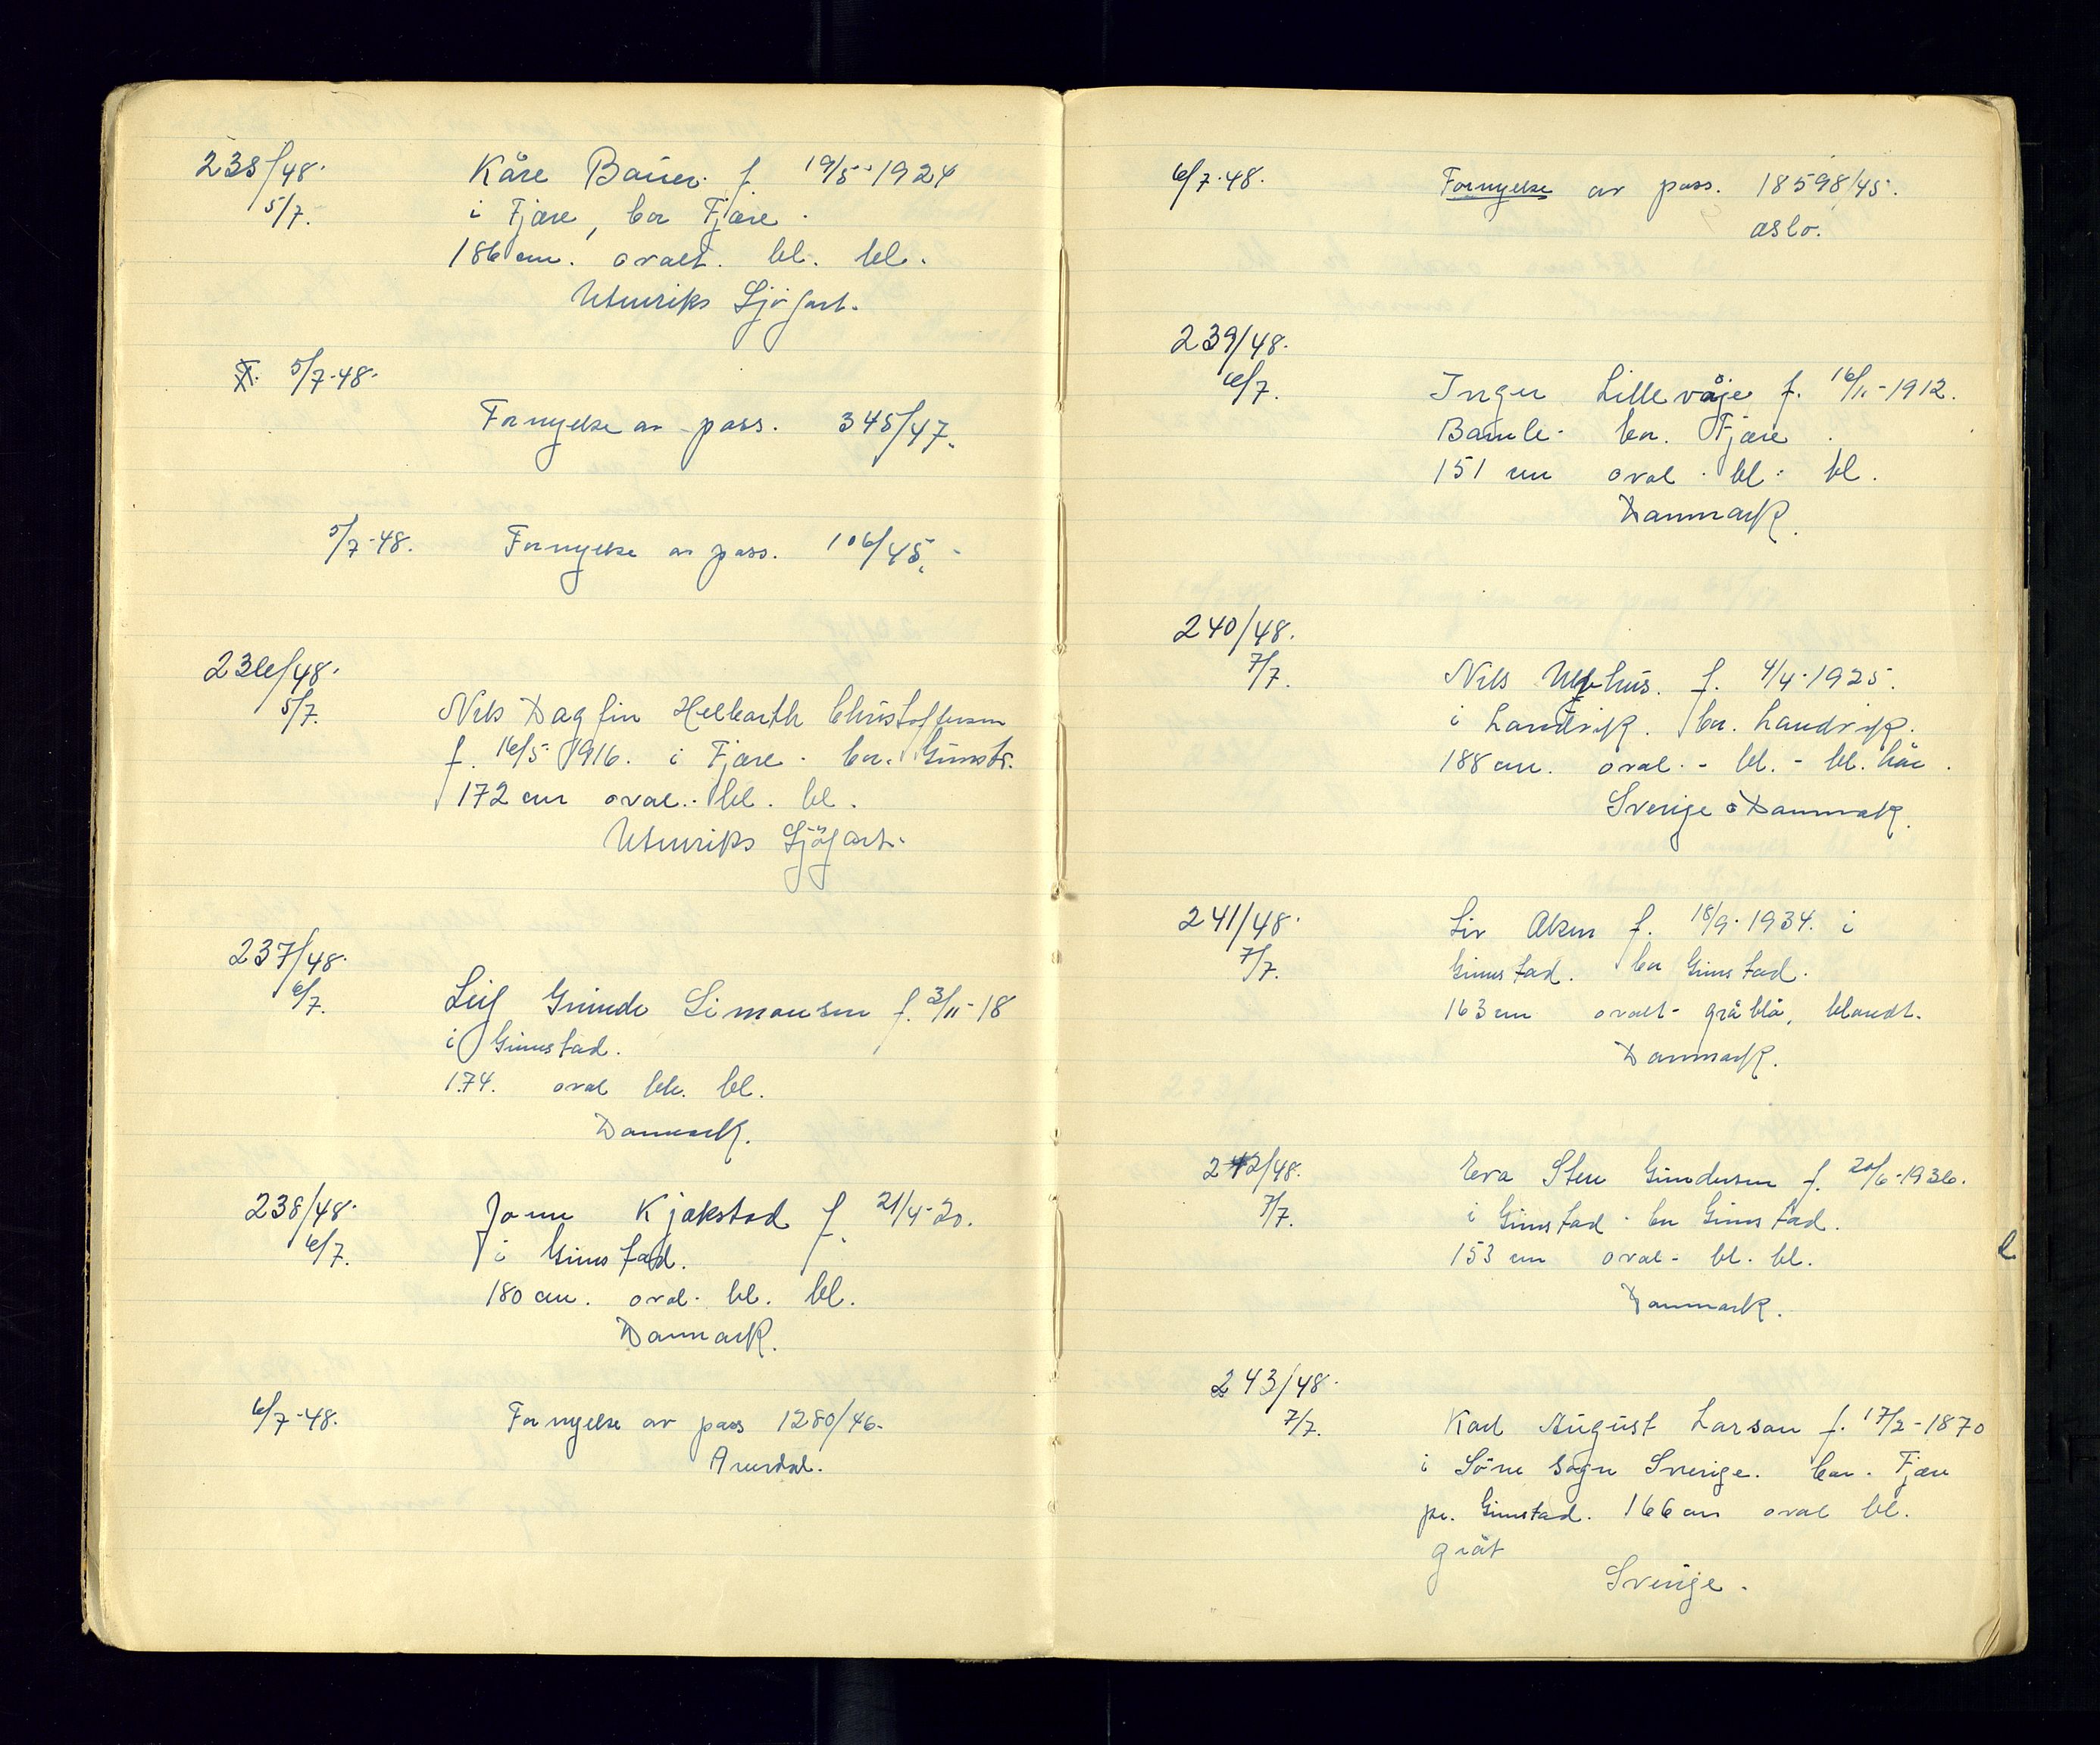 235/48.
5/7.
Kåre Bauer. f. 19/5-1924
i Fjære, bor Fjære.
186 cm. ovalt. bl. bl.
Utenriks Sjöfart.
5/7-48.
Fornyelse av pass. 345/47.
5/7-48. Fornyelse av pass. 106/45.
236/48.
5/7.
Nils Dagfin Helbarth Christoffersen
f. 16/5 1916. i Fjære. bor. Grimst.
172 cm oval. bl. bl.
Utenriks Sjöfart.
237/48.
6/7.
Leif Grimde Simonsen f. 3/11-18
i Grimstad.
174. oval bl. bl.
Danmark.
238/48.
6/7.
Jonn Kjækstad f. 21/4-20.
i Grimstad.
180 cm. oval. bl. bl.
Danmark.
6/7-48. Fornyelse av pass 1280/46.
Arendal.
6/7-48. Fornyelse av pass. 18598/45.
oslo.
239/48.
6/7.
Inger Lillevåje f. 16/11-1912.
Bamle. bor. Fjære.
151 cm oval. bl. bl.
Danmark.
240/48.
7/7.
Nils f. 4/4-1925.
i Landvik. bor. Landvik.
188 cm. oval. - bl. - bl. hår.
Sverige o Danmark.
241/48.
7/7.
Liv Aken f. 18/9-1934. i
Grimstad. bor Grimstad.
163 cm ovalt- gråblå, blondt.
Danmark.
242/48.
7/7.
Eva Sten Gundersen f. 20/6-1936.
i Grimstad. bor Grimstad.
153 cm oval- bl. bl.
Danmark.
243/48.
7/7.
Karl August Larson f. 17/2-1870
i Söne sogn Sverige. bor. Fjære
pr. Grimstad. 166 cm oval bl.
gråt
Sverige.